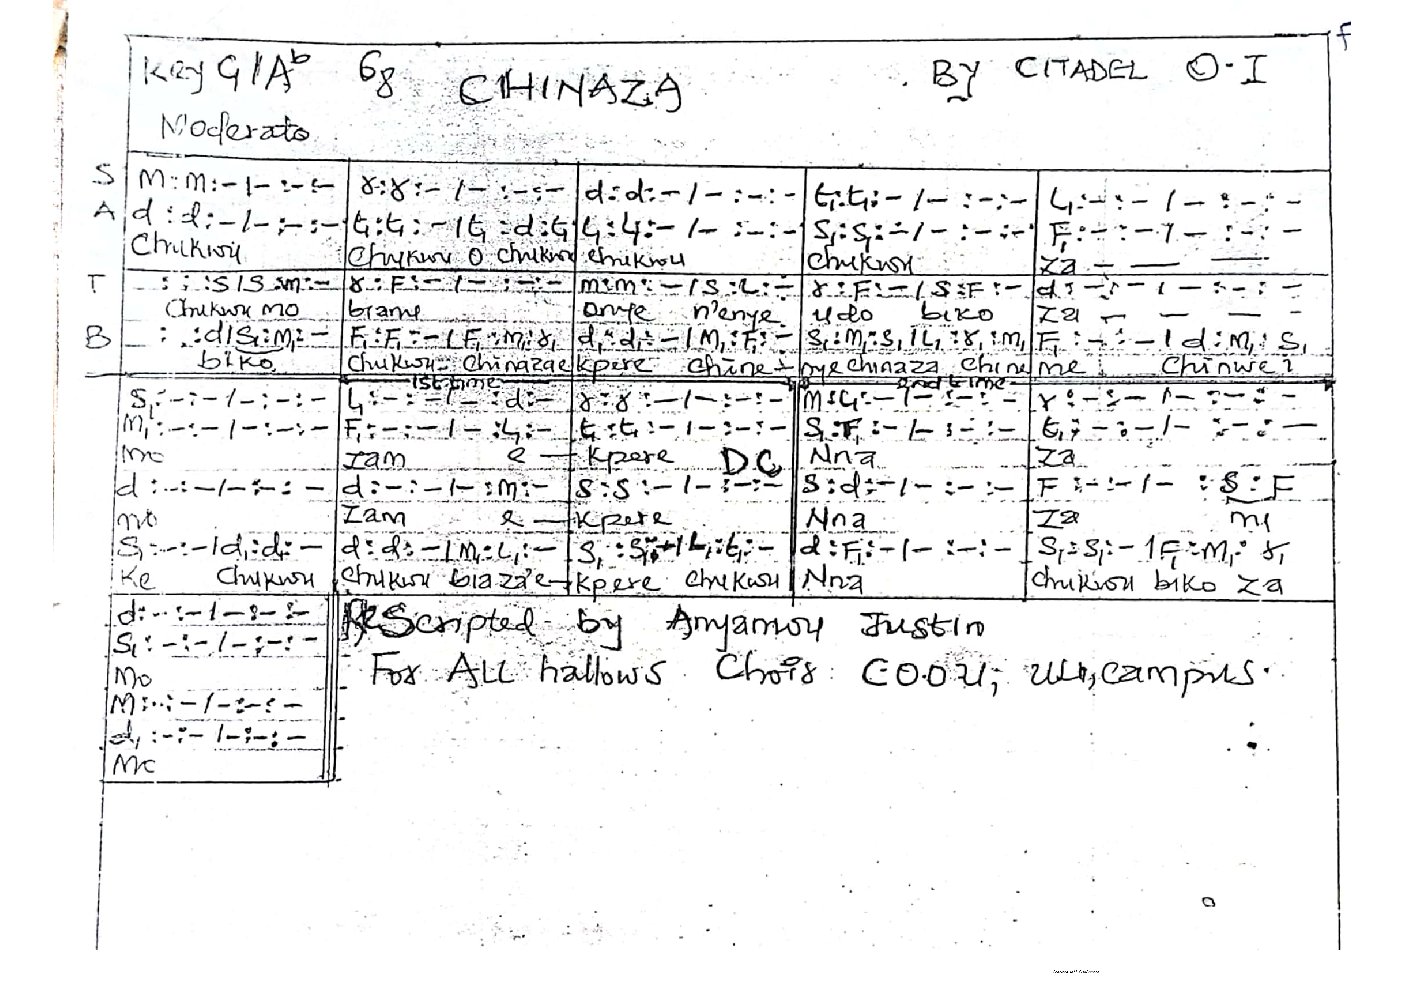 Key G/Ab 6 8 CHINAZA . By CITADEL O.I
Moderato
S M:m:-/-:-:- r:r:-/-:-:- d:d:-/-:-:- t₁:t₁:-/-:-:- L₁:-:-/-:-:-
A d:d:-/-:-:- t₁:t₁:-/t₁:d:t₁ L₁:L₁:-/-:-:- S₁:S₁:-/-:-:- F₁:-:-/-:-:-
Chukwu Chukwu O chukwu chukwu chukwu Za
T :::S/S:m:- r:F:-/-:-:- m:m:-/S:L:- r:F:-/S:F:- d:-:-/-:-:-
Chukwu mo biame onye n'enye udo biko Za
B :::d/S₁:M₁:- F₁:F₁:-/F₁:m₁:r₁ d₁:d₁:-/M₁:F₁:- S₁:M₁:S₁/L₁:r₁:m₁ F₁:-:-/d:M₁:S₁
biko Chukwu- Chinazae kpere chine- nye chinaza chine me Chinwei
1st time 2nd time
S₁:-:-/-:-:- L₁:-:-/-:d:- r:r:-/-:-:- M:L₁:-/-:-:- r:-:-/-:-:-
M₁:-:-/-:-:- F₁:-:-/-:L₁:- t₁:t₁:-/-:-:- S₁:F₁:-/-:-:- t₁:-:-/-:-:-
Mo Zam e - kpere DC Nna Za
d:-:-/-:-:- d:-:-/-:m:- S:S:-/-:-:- S:d:-/-:-:- F:-:-/-:S:F
mo Zam e - kpere Nna Za m
S₁:-:-/d₁:d₁:- d:d:-/M₁:L₁:- S₁:S₁:-/L₁:t₁:- d:F₁:-/-:-:- S₁:S₁:-/F₁:M₁:r₁
Ke Chukwu Chukwu biaza'e- kpere chukwu Nna chukwu biko Za
d:-:-/-:-:- ReScripted by Anyamou Justin
S₁:-:-/-:-:-
Mo For ALL hallows Choir COOU; Uli, campus.
M:-:-/-:-:-
d₁:-:-/-:-:-
Mo